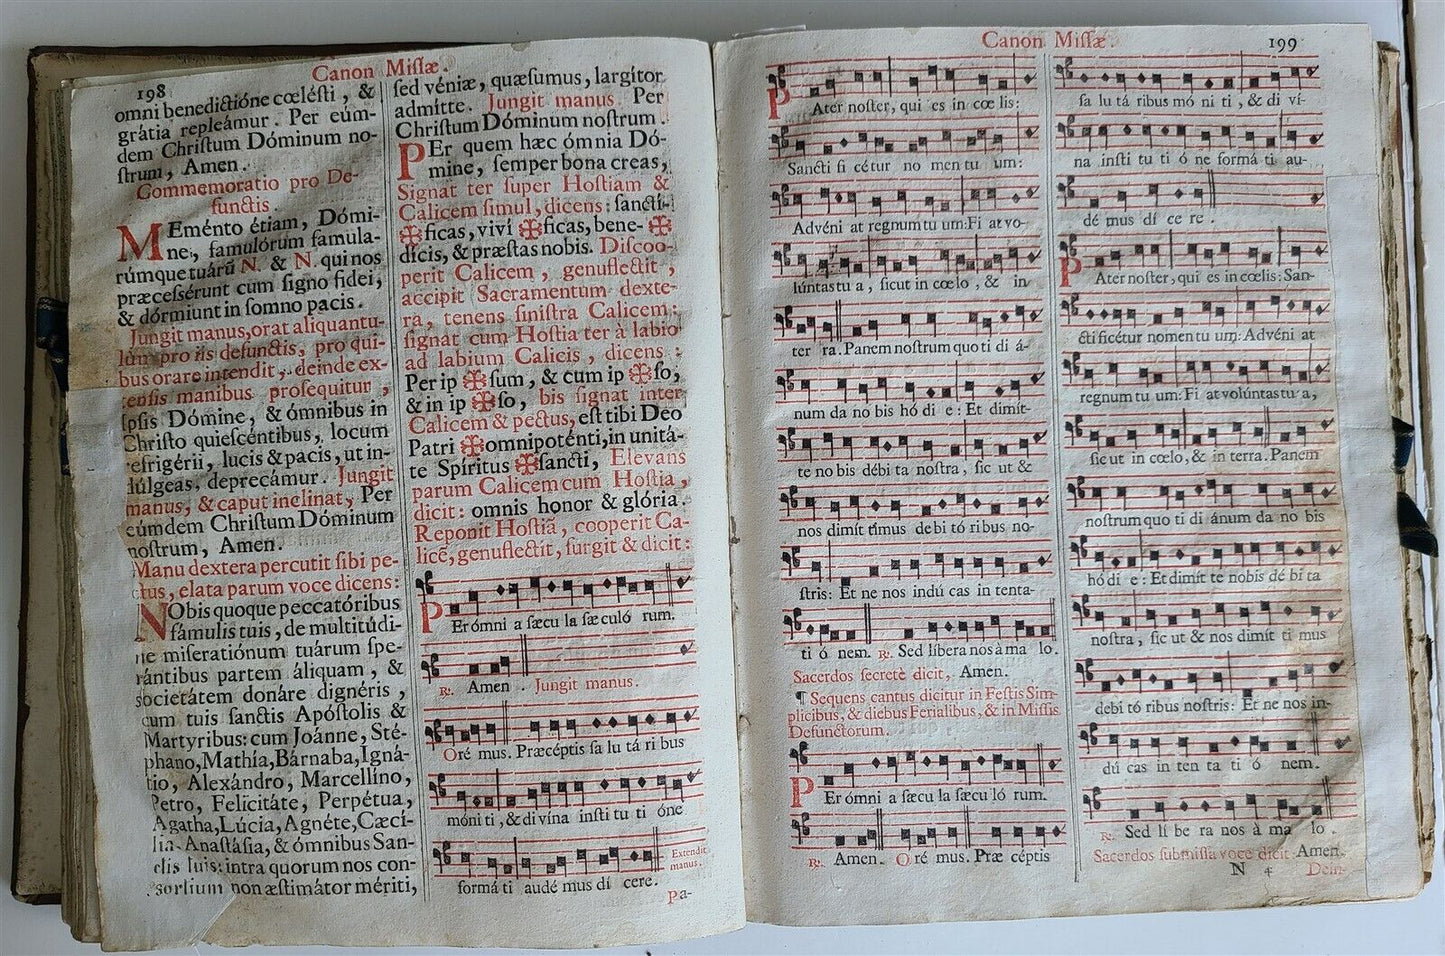 198
Canon Missæ.
omni benedictióne cœlésti, &
grátia repleámur. Per eúm-
dem Christum Dóminum no-
strum, Amen.
Commemoratio pro De-
functis
MEménto étiam, Dómi-
ne, famulórum famula-
rúmque tuárū N. & N. qui nos
præcessérunt cum signo fidei,
& dórmiunt in somno pacis.
Jungit manus, orat aliquantu-
lum pro iis defunctis, pro qui-
bus orare intendit, deinde ex-
tensis manibus prosequitur,
Ipsis Dómine, & ómnibus in
Christo quiescéntibus, locum
refrigérii, lucis & pacis, ut in-
dúlgeas, deprecámur. Jungit
manus, & caput inclinat, Per
eúmdem Christum Dóminum
nostrum, Amen.
Manu dextera percutit sibi pe-
ctus, elata parum voce dicens:
NObis quoque peccatóribus
fámulis tuis, de multitúdi-
ne miseratiónum tuárum spe-
rántibus partem áliquam, &
societátem donáre dignéris,
cum tuis sanctis Apóstolis &
Martyribus: cum Joánne, Sté-
phano, Mathía, Bárnaba, Igná-
tio, Alexándro, Marcellíno,
Petro, Felicitáte, Perpétua,
Agatha, Lúcia, Agnéte, Cæcí-
lia, Anastásia, & ómnibus San-
ctis tuis: intra quorum nos con-
sortium non æstimátor mériti,
sed véniæ, quæsumus, largítor
admítte. Jungit manus. Per
Christum Dóminum nostrum.
PEr quem hæc ómnia Dó-
mine, semper bona creas,
Signat ter super Hostiam &
Calicem simul, dicens: sanctí-
✠ ficas, viví ✠ ficas, bene- ✠
dícis, & præstas nobis. Discoo-
perit Calicem, genuflectit,
accipit Sacramentum dexte-
ra, tenens sinistra Calicem:
signat cum Hostia ter à labio
ad labium Calicis, dicens:
Per ip ✠ sum, & cum ip ✠ so,
& in ip ✠ so, bis signat inter
Calicem & pectus, est tibi Deo
Patri ✠ omnipoténti, in unitá-
te Spíritus ✠ sancti, Elevans
parum Calicem cum Hostia,
dicit: omnis honor & glória.
Reponit Hostiā, cooperit Ca-
licē, genuflectit, surgit & dicit:
Per ómni a sæcu la sæculó rum.
℟. Amen. Jungit manus.
Oré mus. Præcéptis sa lu tá ri bus
móni ti, & divína insti tu ti óne
formá ti audé mus dí cere.
Extendit
manus.
Pa-
Canon Missæ.
199
PAter noster, qui es in cœ lis:
Sancti fi cétur no men tu um:
Advéni at regnum tu um: Fi at vo-
lúntas tu a, sicut in cœ lo, & in
ter ra. Panem nostrum quo ti di á-
num da no bis hó di e: Et dimít-
te no bis débi ta nostra, sic ut &
nos dimít timus de bi tó ribus no-
stris: Et ne nos indú cas in tenta-
ti ó nem. ℟. Sed líbera nos à ma lo.
Sacerdos secretè dicit, Amen.
¶ Sequens cantus dicitur in Festis Sim-
plicibus, & diebus Ferialibus, & in Missis
Defunctorum.
PEr ómni a sæcu la sæcu ló rum.
℟. Amen. Oré mus. Præ céptis
sa lu tá ribus mó ni ti, & di ví-
na insti tu ti ó ne formá ti au-
dé mus dí ce re.
PAter noster, qui es in cœlis: San-
cti ficétur nomen tu um: Advéni at
regnum tu um: Fi at volúntas tu a,
sic ut in cœlo, & in terra. Panem
nostrum quo ti di ánum da no bis
hó di e: Et dimít te nobis dé bi ta
nostra, sic ut & nos dimít ti mus
debi tó ribus nostris: Et ne nos in-
dú cas in ten ta ti ó nem.
℟. Sed lí be ra nos à ma lo.
Sacerdos submissa voce dicit Amen.
N 4
Dein-